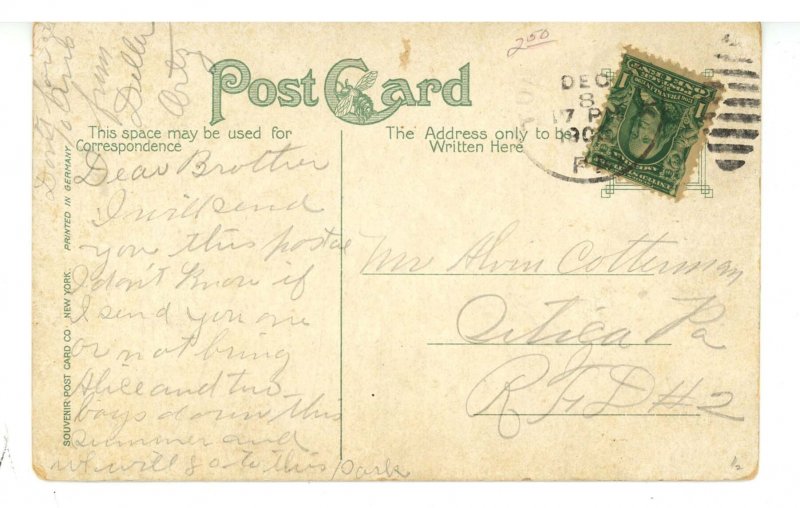 2 00
Post Card
This space may be used for
Correspondence
The Address only to be
Written Here
DEC
8
7 P
190
PRINTED IN GERMANY
SOUVENIR POST CARD CO. NEW YORK.
Dear Brother
I will send
you this postal
I don't know if
I send you one
or not bring
Alice and two
boys down this
summer and
we will go to this park
from
Mr Alvin Cotterman
Pa
R F D #2
1